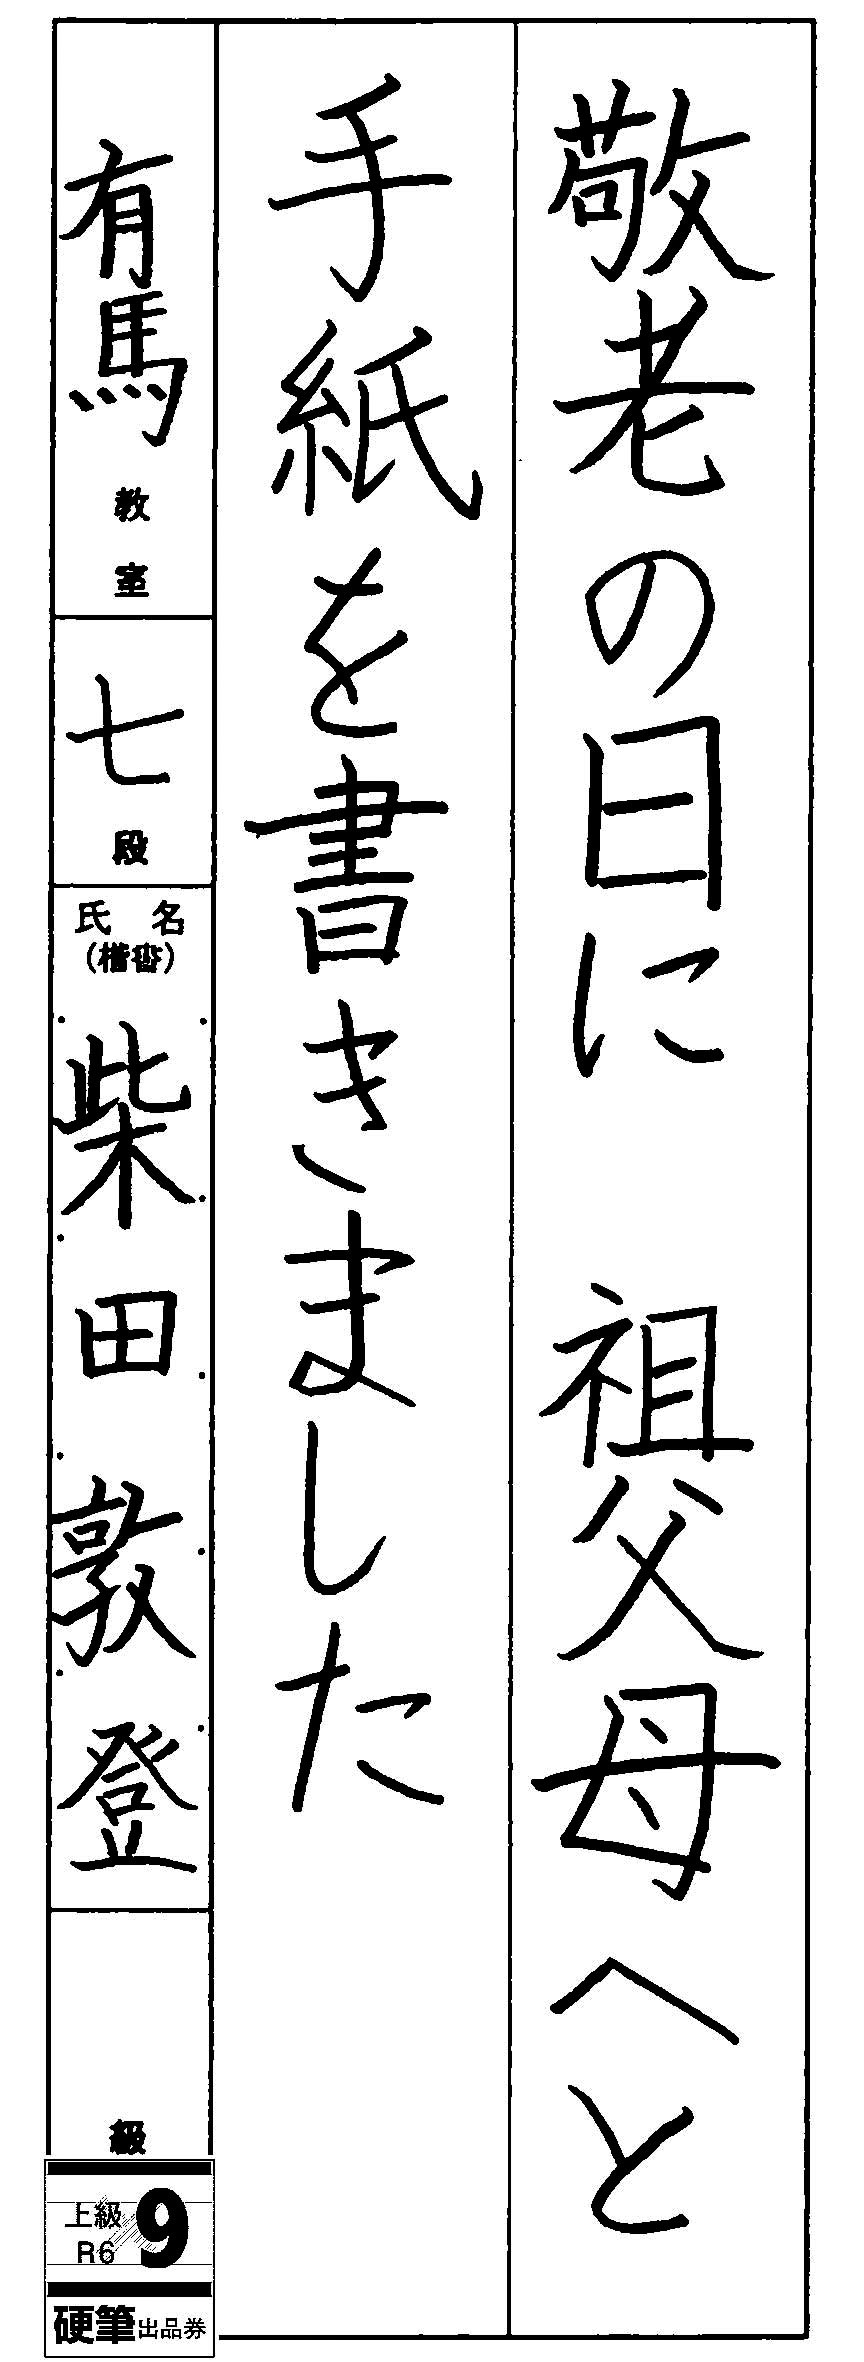 敬老の日に　祖父母へと
手紙を書きました
有馬教室
七段
氏名
(楷書)
柴田敦登
級
上級
R6
9
硬筆出品券